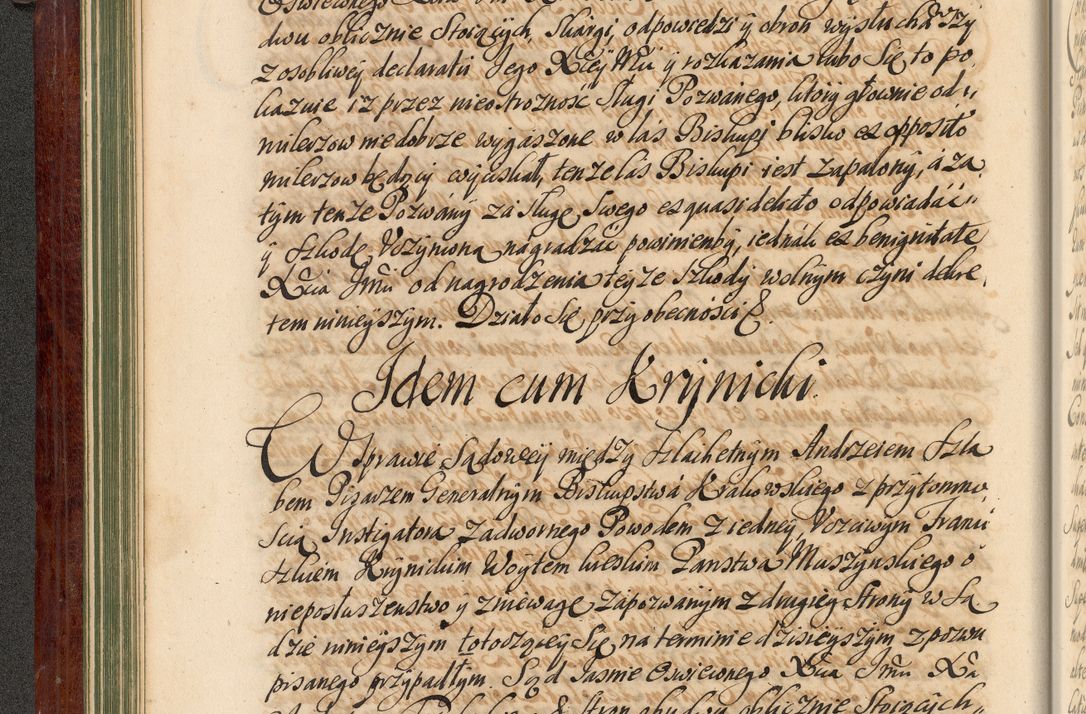 dwu oblicznie Stoiących, Skargi, odpowiedzi y obron wysłuchawszy
z osobliwey declaratii Jego Xcey Mci y rozkazania lubo Się to po,
kazuie iz przez nieostrozność Sługi Pozwanego, ktory głownie od,,
milerzow niedobrze wygaszone w las Biskupi blisko ex opposito
milerzow będący wyciskał, tenze las Biskupi iest zapalony, á za
tym tenze Pozwány zá Sługę Swego ex quasi delicto odpowiadáć,,
y szkodę Uczynioną nágradzać powinienby, iednák ex benignitate
Xcia Jmći od nagrodzenia teyze szkody wolnym czyni dekre,
tem ninieyszym. Działo Się przy obecności &.
Idem cum Krynicki.
W Sprawie Sądowey między szlachetnym Andrzeiem szla
bem Pisarzem Generalnym Biskupstwá Krakowskiego z przytomno,
ścią Instigatora Zadwornego Powodem z iedney Uczciwym Franci
szkiem Krynickim Woytem kreskim Państwa Muszynskiego o
nieposłuszenstwo y zniewagę zapozwanym z drugiey Strony w Są
dzie ninieyszym totoczącey Się, na terminie dzisieyszym z pozwu
pisanego przypadłym. Sąd Jasnie Oswieconego Xcia Jmći Xa
Stron obudwu oblicznie Stoiących,,